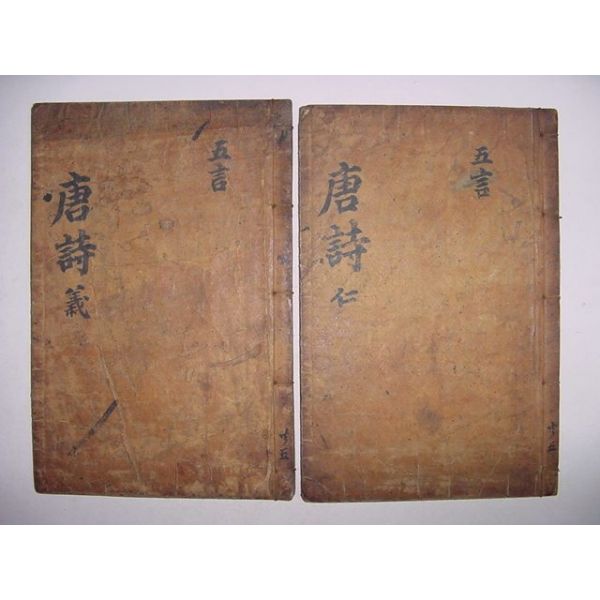 五言
唐詩 仁
五言
唐詩 義